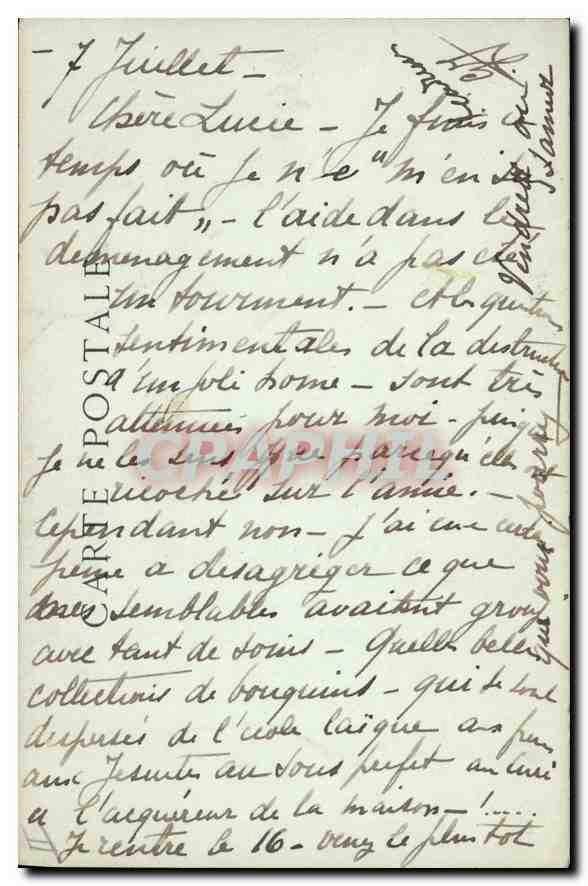 - 7 Juillet -
Chère Lucie - Je
temps où Je n'e "m'en
pas fait" - l'aide dans le
demenagement n'a pas été
un tourment. - et les questions
sentimentales de la destruction
d'un joli home - sont très
attenuées pour moi - puisque
Je ne les sens que parcequ'elles ont
ricoché sur l'amie. -
Cependant non - J'ai eu
peine a desagréger ce que
mes semblables avaient
avec tant de soins - Quelles belles
collections de bouquins - qui se sont
dispersés de l'école laïque aux
aux Jesuites au sous prefet au curé
a l'acquéreur de la maison - !....
Je rentre le 16 - venez le plus tot
que vous pourrez
Vendredi ou
Samedi
CARTE POSTALE
CPAPHIL